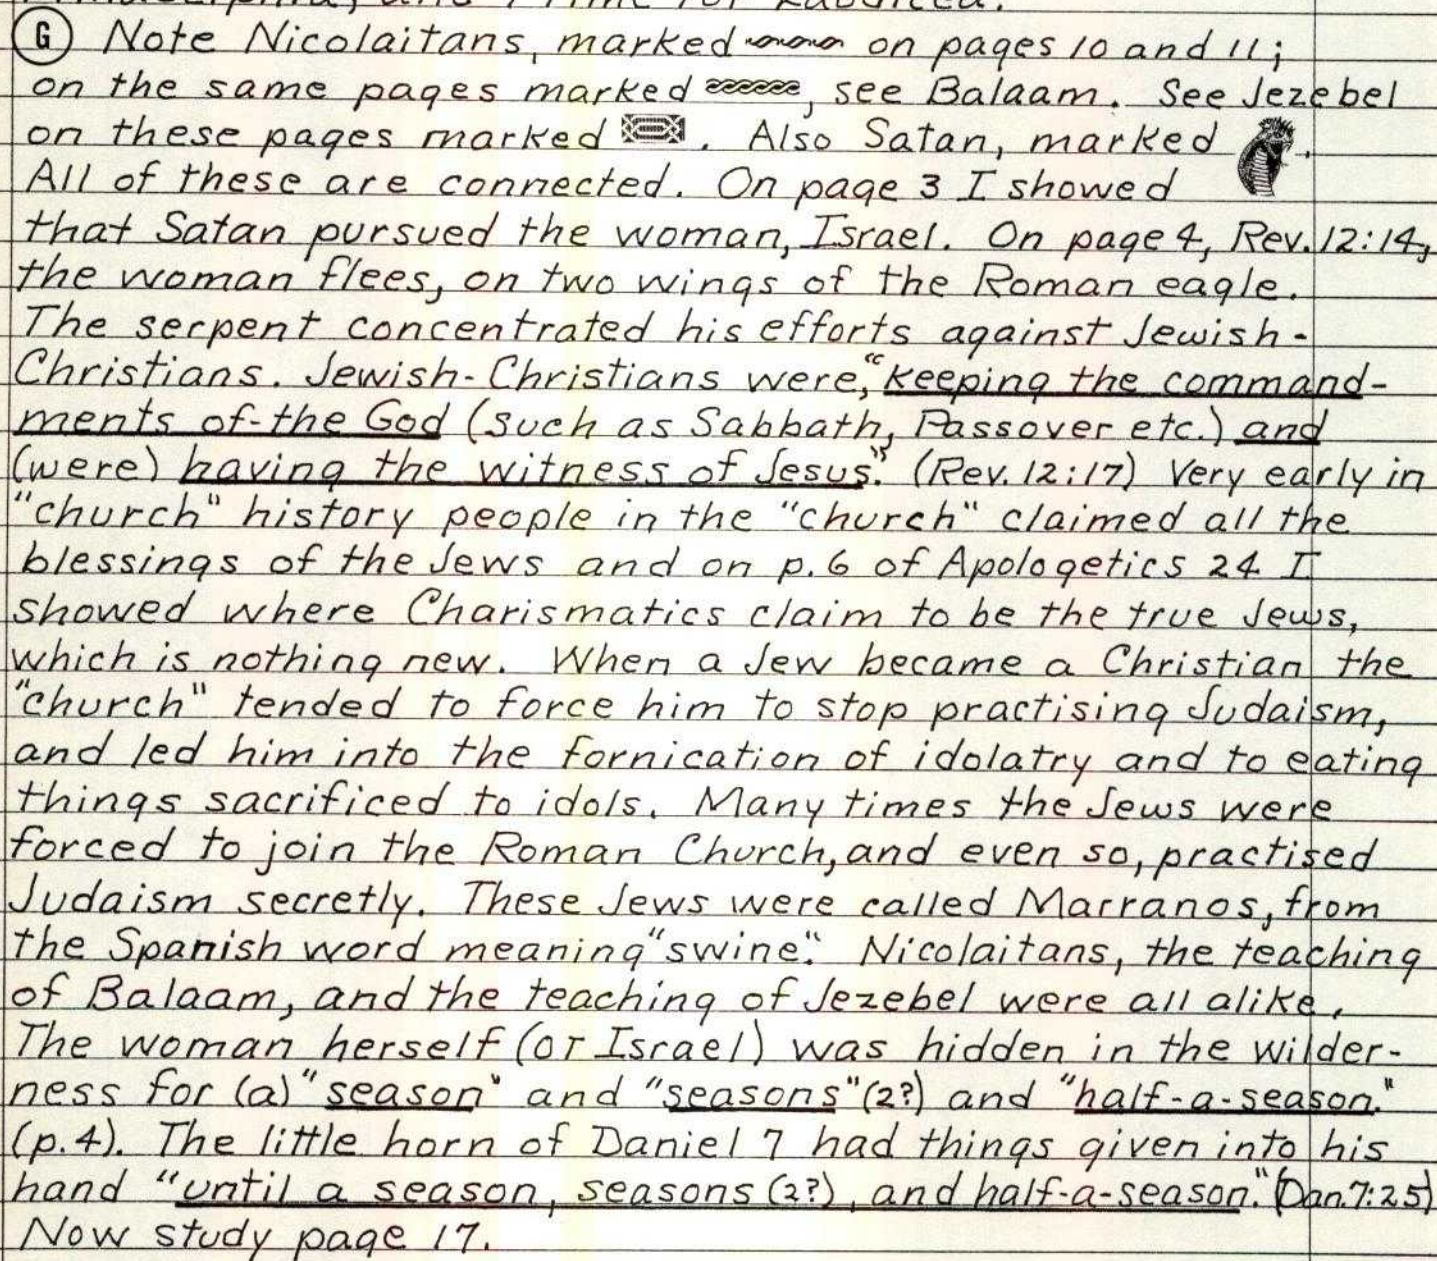 Ⓖ Note Nicolaitans, marked on pages 10 and 11;
on the same pages marked , see Balaam. See Jezebel
on these pages marked . Also Satan, marked .
All of these are connected. On page 3 I showed
that Satan pursued the woman, Israel. On page 4, Rev. 12:14,
the woman flees, on two wings of the Roman eagle.
The serpent concentrated his efforts against Jewish-
Christians. Jewish-Christians were, "keeping the command-
ments of-the God (such as Sabbath, Passover etc.) and
(were) having the witness of Jesus." (Rev. 12:17) Very early in
"church" history people in the "church" claimed all the
blessings of the Jews and on p.6 of Apologetics 24 I
showed where Charismatics claim to be the true Jews,
which is nothing new. When a Jew became a Christian the
"church" tended to force him to stop practising Judaism,
and led him into the fornication of idolatry and to eating
things sacrificed to idols. Many times the Jews were
forced to join the Roman Church, and even so, practised
Judaism secretly. These Jews were called Marranos, from
the Spanish word meaning "swine". Nicolaitans, the teaching
of Balaam, and the teaching of Jezebel were all alike.
The woman herself (or Israel) was hidden in the wilder-
ness for (a) "season" and "seasons" (2?) and "half-a-season."
(p.4). The little horn of Daniel 7 had things given into his
hand "until a season, seasons (2?), and half-a-season." (Dan. 7:25)
Now study page 17.